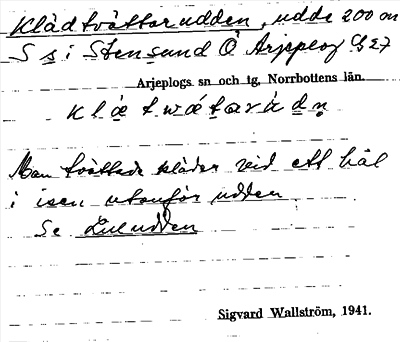 Klädtvättarudden, udde 200 m
S s i Stensund Ö Arjeplog
Arjeplogs sn och tg, Norrbottens län.
Man tvättade kläder vid ett hål
i isen utanför udden
Se Luludden
Sigvard Wallström, 1941.